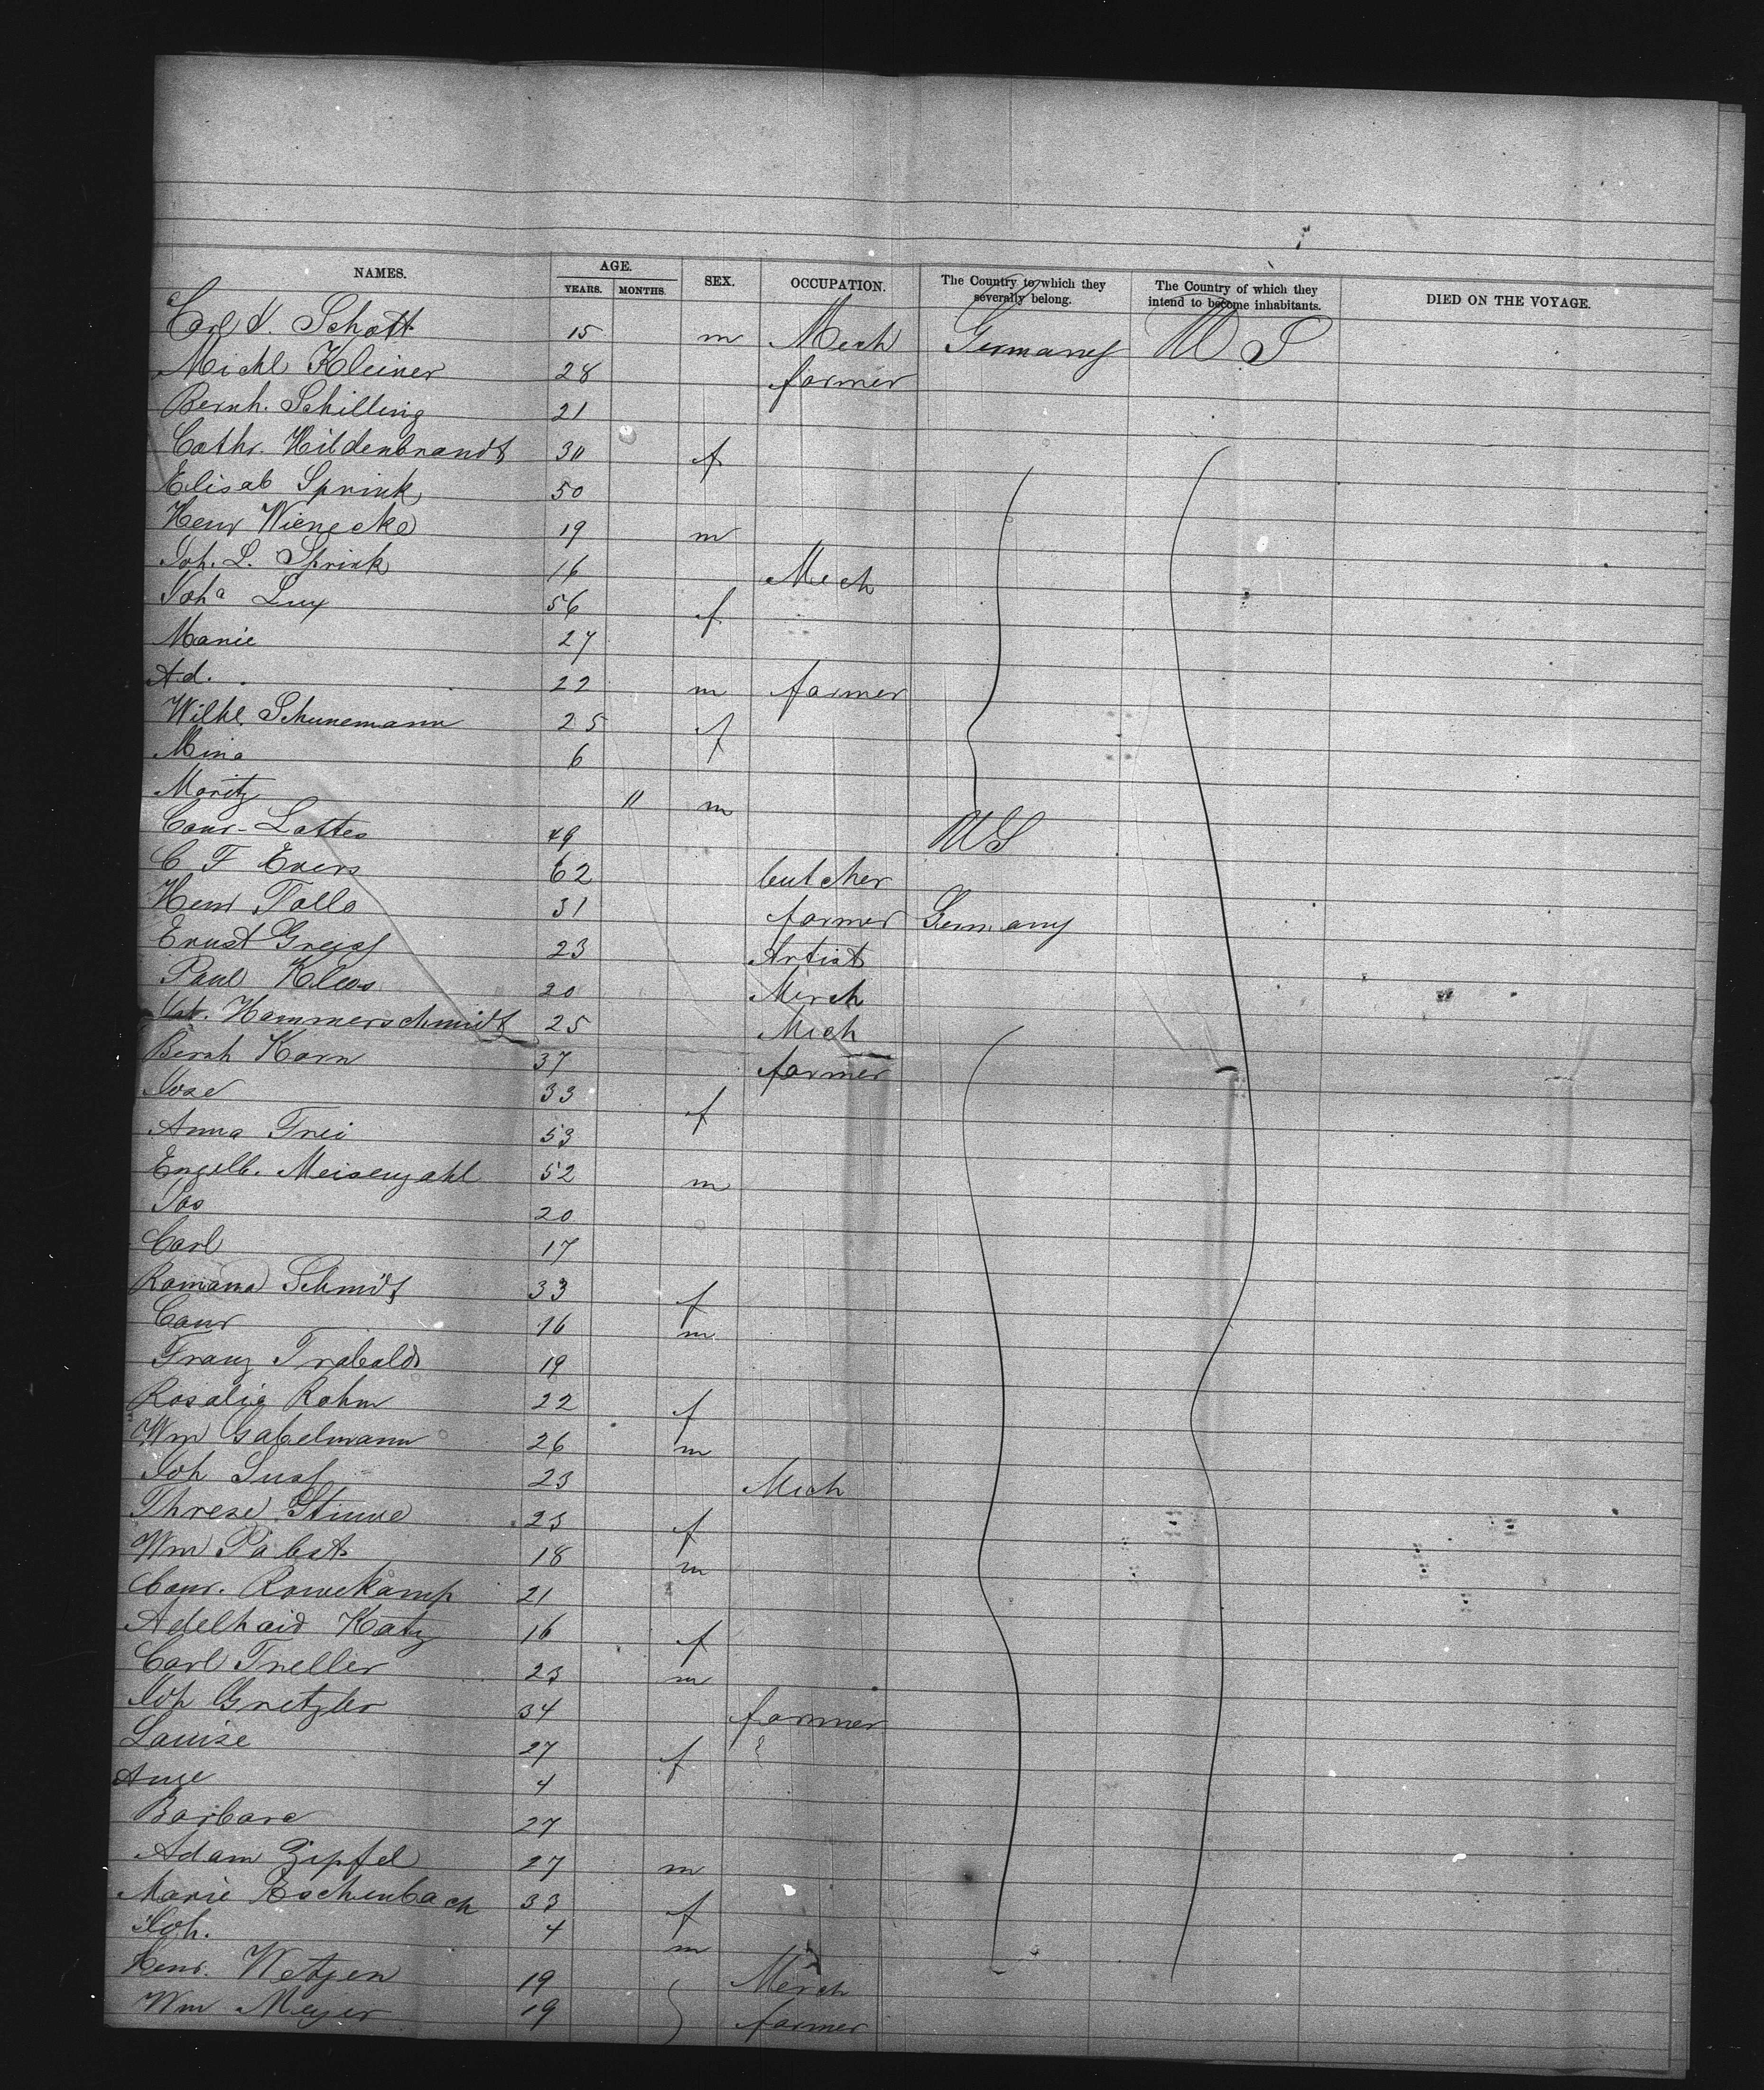 NAMES. AGE. SEX. OCCUPATION. The Country to which they severally belong. The Country of which they intend to become inhabitants. DIED ON THE VOYAGE.
YEARS. MONTHS.
Carl V. Schott 15 m Mech Germany U S
Michl Kleiner 28 farmer
Bernh. Schilling 21
Cathr. Hildenbrandt 30 f
Elisab Sprink 50
Henr Wienecke 19 m
Joh. L. Sprink 16 Mech
Joha Lux 56 f
Marie 27
Ad. 22 m farmer
Wilhl Schunemann 25 f
Mina 6 f
Moritz 11 m
Conr Lottes 49 U S
C F Evers 62 butcher
Henr Tolle 31 farmer Germany
Ernst Greisf 23 Artist
Paul Klees 20 Merch
Hammerschmidt 25 Mech
Bernh Korn 37 farmer
Jose 33 f
Anna Frei 53
Engelb. Meisenzahl 52 m
Jos 20
Carl 17
Romana Schmidt 33 f
Conr 16 m
Franz Trabold 19
Rosalie Rohm 22 f
Wm Gabelmann 26 m
Joh 23 Mech
Threse Stinwe 23 f
Wm Pabst 18 m
Conr. Rowekamp 21
Adelhaid Katz 16 f
Carl Treller 23 m
Joh Gretzler 34 farmer
Louise 27 f
4
Barbara 27
Adam Zipfel 27 m
Marie Eschenbach 33 f
Joh. 4 m
Henr. Wetjen 19 Merch
Wm Meyer 19 farmer